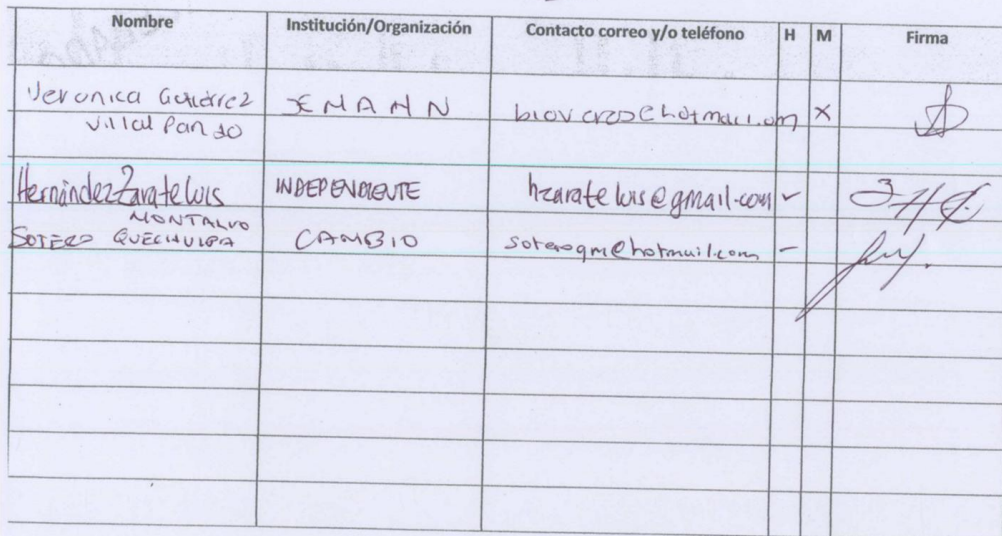 Nombre Institución/Organización Contacto correo y/o teléfono H M Firma
Veronica Gutiérrez XENANN X
Villalpando
Hernández Zarate Luis INDEPENDIENTE hzarateluis@gmail.com ✓
MONTALVO
SOTERO QUECHULPA CAMBIO soteroqm@hotmail.com -